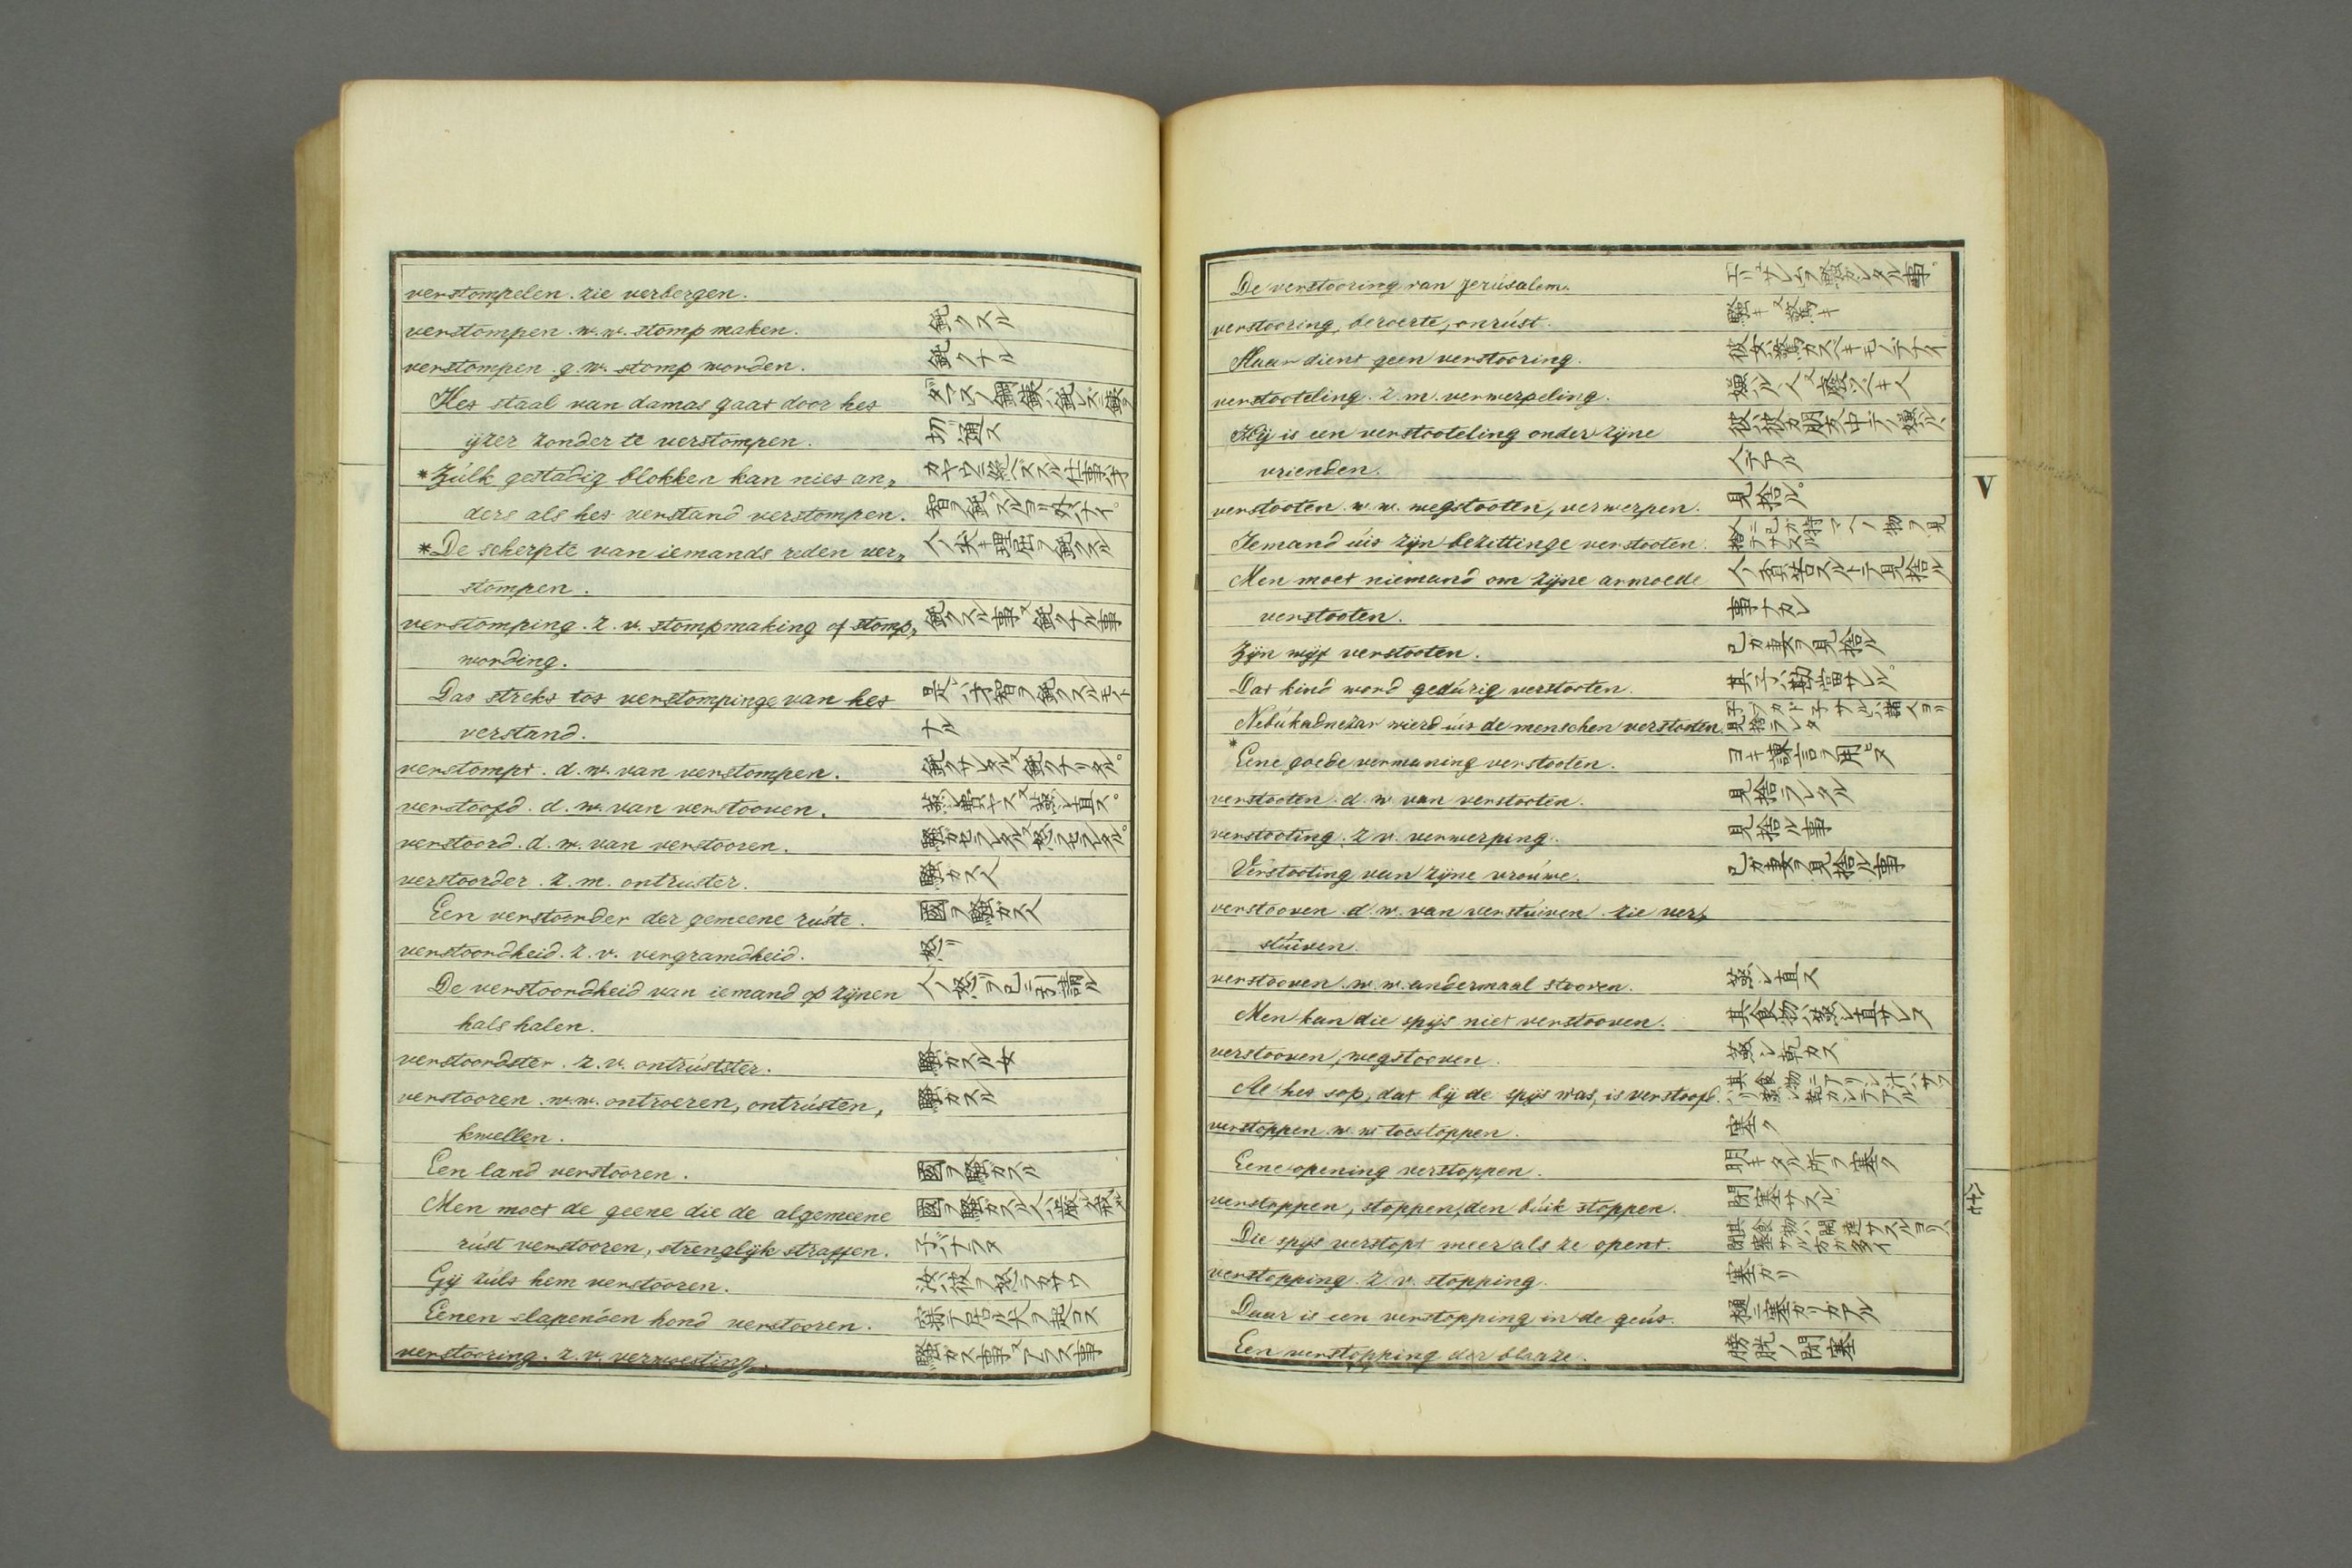 verstompelen. zie verbergen.
verstompen. w.w. stomp maken. 鈍クスル
verstompen. g.w. stomp worden. 鈍クナル
Het staal van damas gaat door het
ijzer zonder te verstompen. 切通ス
*Zúlk gestadig blokken kan niet an„
ders als het verstand verstompen.
*De scherpte van iemands reden ver„ 人ノ尖キ理屈ヲ鈍クスル
stompen.
verstomping. z.v. stompmaking of stomp„ 鈍クスル事又鈍クナル事
wording.
Dat strekt tot verstompinge van het
verstand. ナル
verstompt. d.w. van verstompen. 鈍クサレタル又鈍クナリタル。
verstoofd. d.w. van verstooven.
verstoord. d.w. van verstooren. 騒ガセラレタル又怒ラセラレタル。
verstoorder. z.m. ontruster. 騒ガス人
Een verstoorder der gemeene rúste. 國ヲ騒ガス人
verstoordheid. z.v. vergramdheid. 怒リ
De verstoordheid van iemand op zijnen 人ノ怒リヲ己ニ引請ル
hals halen.
verstoordster. z.v. ontrústster. 騒ガスル女
verstooren. w.w. ontroeren, ontrústen, 騒ガスル
kwellen.
Een land verstooren. 國ヲ騒ガスル
Men moet de geene die de algemeene 國ヲ騒ガスル人ハ厳シク罰セ
rúst verstooren, strenglijk straffen. 子バナラヌ
Gij zúlt hem verstooren. 汝彼ヲ怒ラカサウ
Eenen slapenden hond verstooren. 寐テ居ル犬ヲ起コス
verstooring. z.v. verwoesting. 騒ガス事又アラス事
De verstooring van Jerúsalem. 「エリサレム」ヲ騒ガシタル事。
verstooring, beroerte, onrúst. 騒キ又驚キ
Haar dient geen verstooring. 彼女ハ驚カスベキモノデナイ
verstooteling. z.m. verwerpeling.
Hij is een verstooteling onder zijne
vrienden. 人デアル
verstooten. w.w. wegstooten, verwerpen. 見捨ル。
Iemand úit zijn bezittinge verstooten. 人ニ己ガ持マヘノ物ヲ見捨テサスル
Men moet niemand om zijne armoede 人ノ貧苦スルトテ見捨ル
verstooten. 事ナカレ
Zijn wijf verstooten. 己ガ妻ヲ見捨ル
Dat kind word gedúrig verstooten. 其子ハ勘當サレル。
Nebúkadnezar wierd úit de menschen verstooten. 子ブカドネサルハ諸人ヨリ見捨ラレタ
*Eene goede vermaning verstooten. ヨキ諫言ヲ用ヒヌ
verstooten. d.w. van verstooten. 見捨ラレタル
verstooting. z.v. verwerping. 見捨ル事
Verstooting van zijne vroúwe. 己ガ妻ヲ見捨ル事
verstooven. d.w. van verstúiven. zie ver„
stúiven.
verstooven. w.w. andermaal stooven. 蒸シ直ス
Men kan die spijs niet verstooven. 其食物ハ蒸シ直サレヌ
verstooven, wegstooven. 蒸シ乾カス。
Al het sop, dat bij de spijs was, is verstoofd. 其食物ニアリシ汁ハサッハリ蒸シ乾カシテアル
verstoppen. w.w. toestoppen. 塞ク
Eene opening verstoppen. 明キタル所ヲ塞ク
verstoppen, stoppen, den búik stoppen. 閉塞サスル
Die spijs verstopt meer als ze opent. 其食物ハ開達サスルヨリハ閉塞サスル方ガ多イ
verstopping. z.v. stopping. 塞ガリ
Daar is een verstopping in de geút. 樋ニ塞ガリガアル
Een verstopping der blaaze. 膀胱ノ閉塞
V